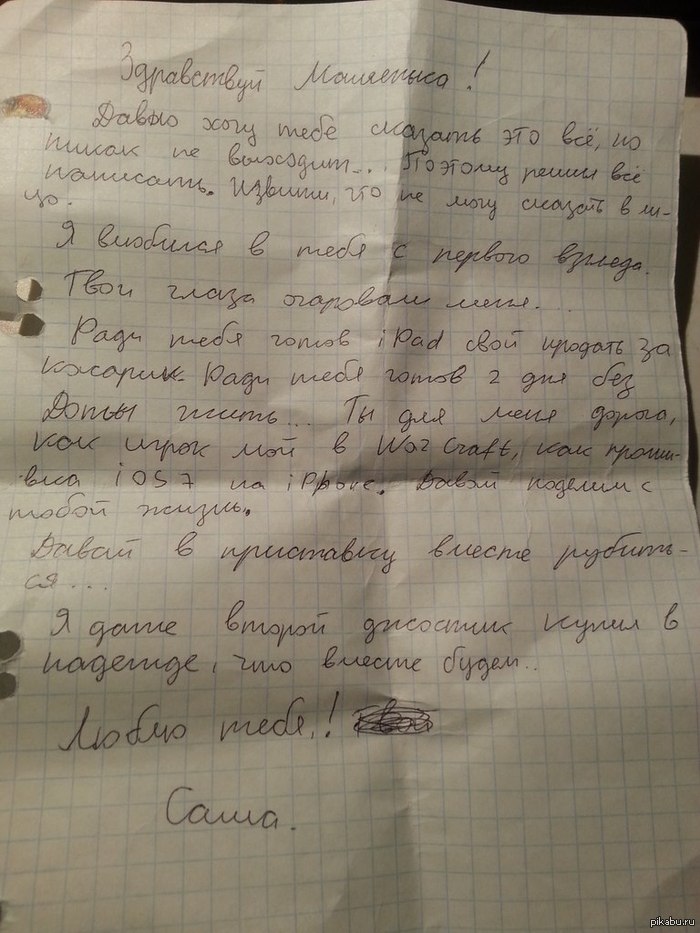 Здравствуй Маленька!
Давно хочу тебе сказать это всё, но
никак не выходит... Поэтому решил всё
написать. Извини, что не могу сказать в ли-
цо.
Я влюбился в тебя с первого взгляда.
Твои глаза очаровали меня...
Ради тебя готов iPad свой продать за
косарик. Ради тебя готов 2 дня без
Доты жить... Ты для меня дорога,
как игрок мой в WarCraft, как прошив-
вка iOS7 на iPhone. Давай поделим с
тобой жизнь.
Давай в приставку вместе рубить-
ся...
Я даже второй джостик купил в
надежде, что вместе будем..
Люблю тебя!
Саша.
pikabu.ru